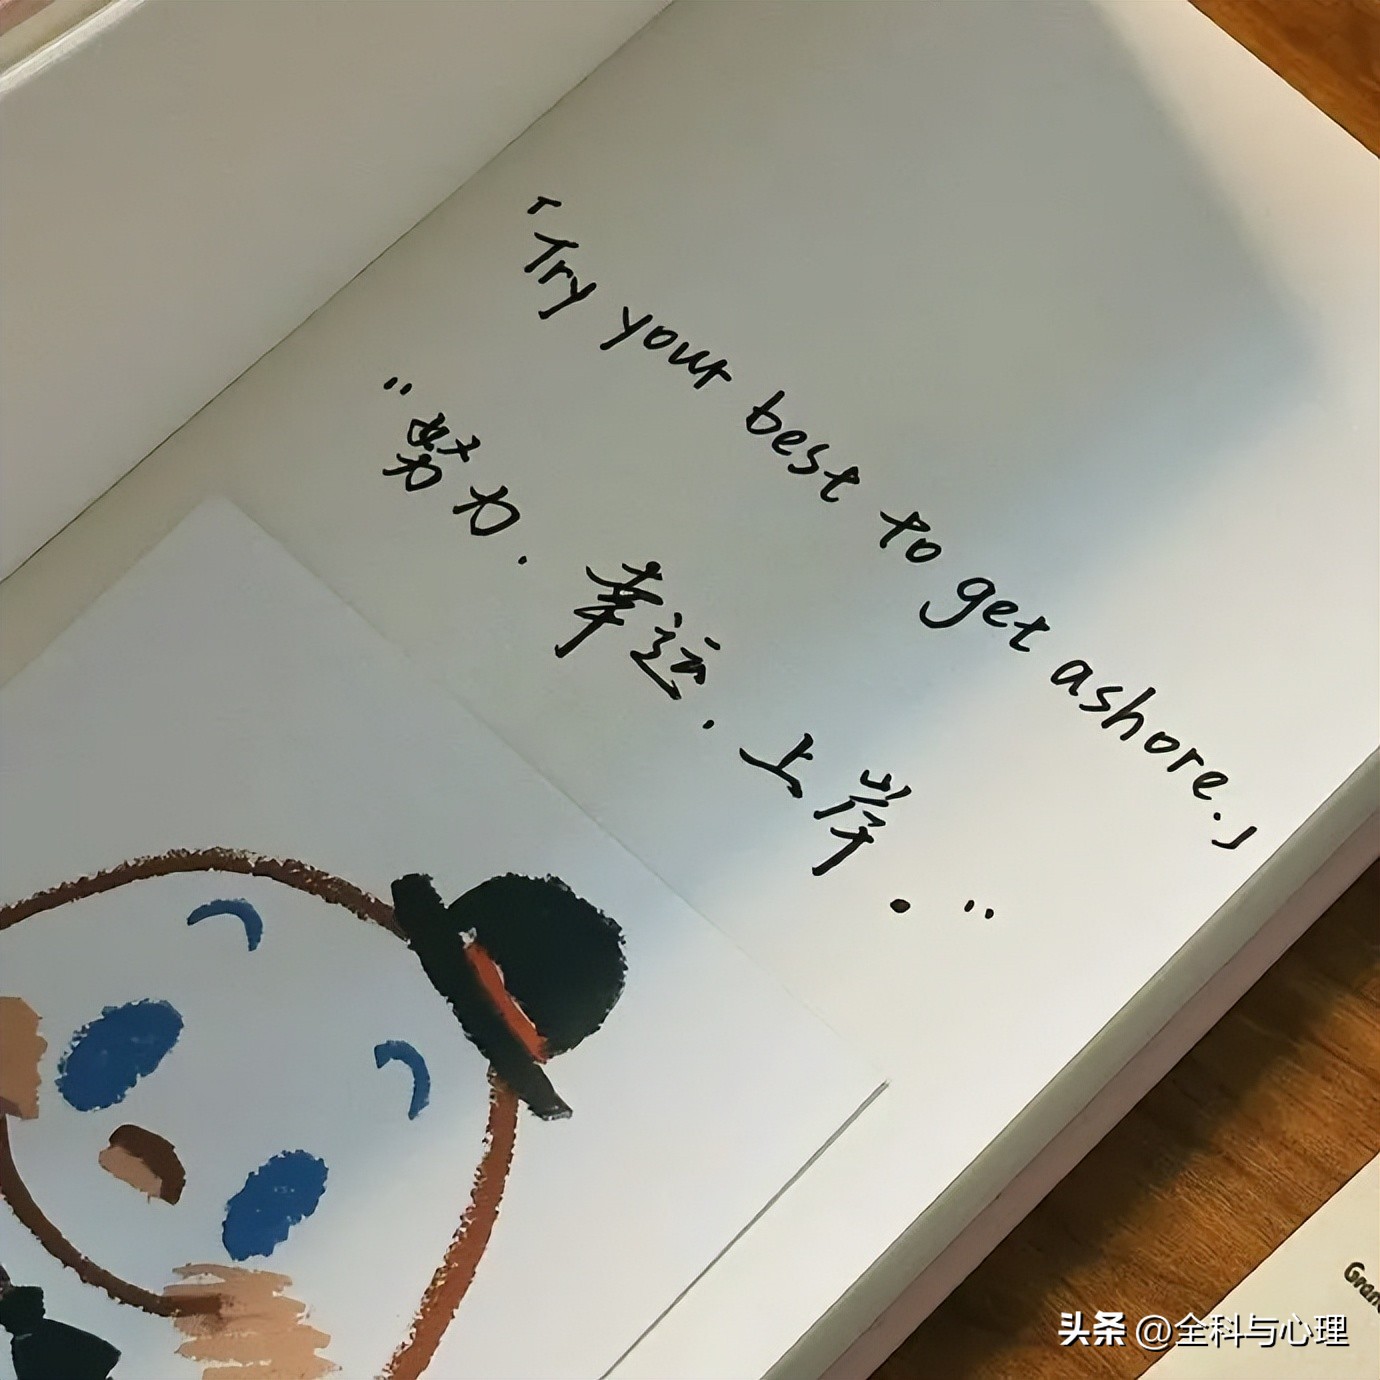 「Try your best to get ashore.」
"努力.幸运.上岸."
Gran
头条 @全科与心理